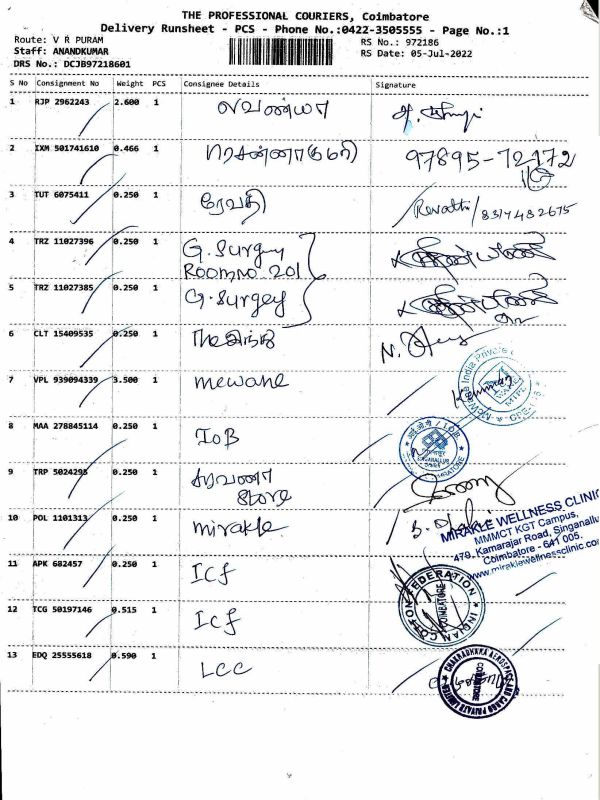 THE PROFESSIONAL COURIERS, Coimbatore
Delivery Runsheet - PCS - Phone No.:0422-3505555 - Page No.:1
Route: V R PURAM
Staff: ANANDKUMAR
DRS No.: DCJB97218601
RS No.: 972186
RS Date: 05-Jul-2022
S No Consignment No Weight PCS Consignee Details Signature
1 RJP 2962243 2.600 1 லவண்யா
2 IXM 501741610 0.466 1 பிரசன்னாகுமரி 97895-72472
3 TUT 6075411 0.250 1 ரேவதி Revathi/8317482675
4 TRZ 11027396 0.250 1 G. Surgey
Room no 201
5 TRZ 11027385 0.250 1 G. Surgey
6 CLT 15409535 0.250 1
7 VPL 939094339 3.500 1 mewane
8 MAA 278845114 0.250 1 IOB
9 TRP 5024295 0.250 1 சரவணா
Store
10 POL 1101313 0.250 1 mirakle
MIRAKLE WELLNESS CLINIC
MMMCT KGT Campus,
479, Kamarajar Road, Singanallu
Coimbatore - 641 005.
www.miraklewellnessclinic.co
11 APK 682457 0.250 1 Icf
INDIAN COTTON FEDERATION
COIMBATORE
12 TCG 50197146 0.515 1 Icf
13 EDQ 25555618 0.590 1 LCC
CHAKRADHARA AEROSPACE AND CARGO PRIVATE LIMITED
COIMBATORE